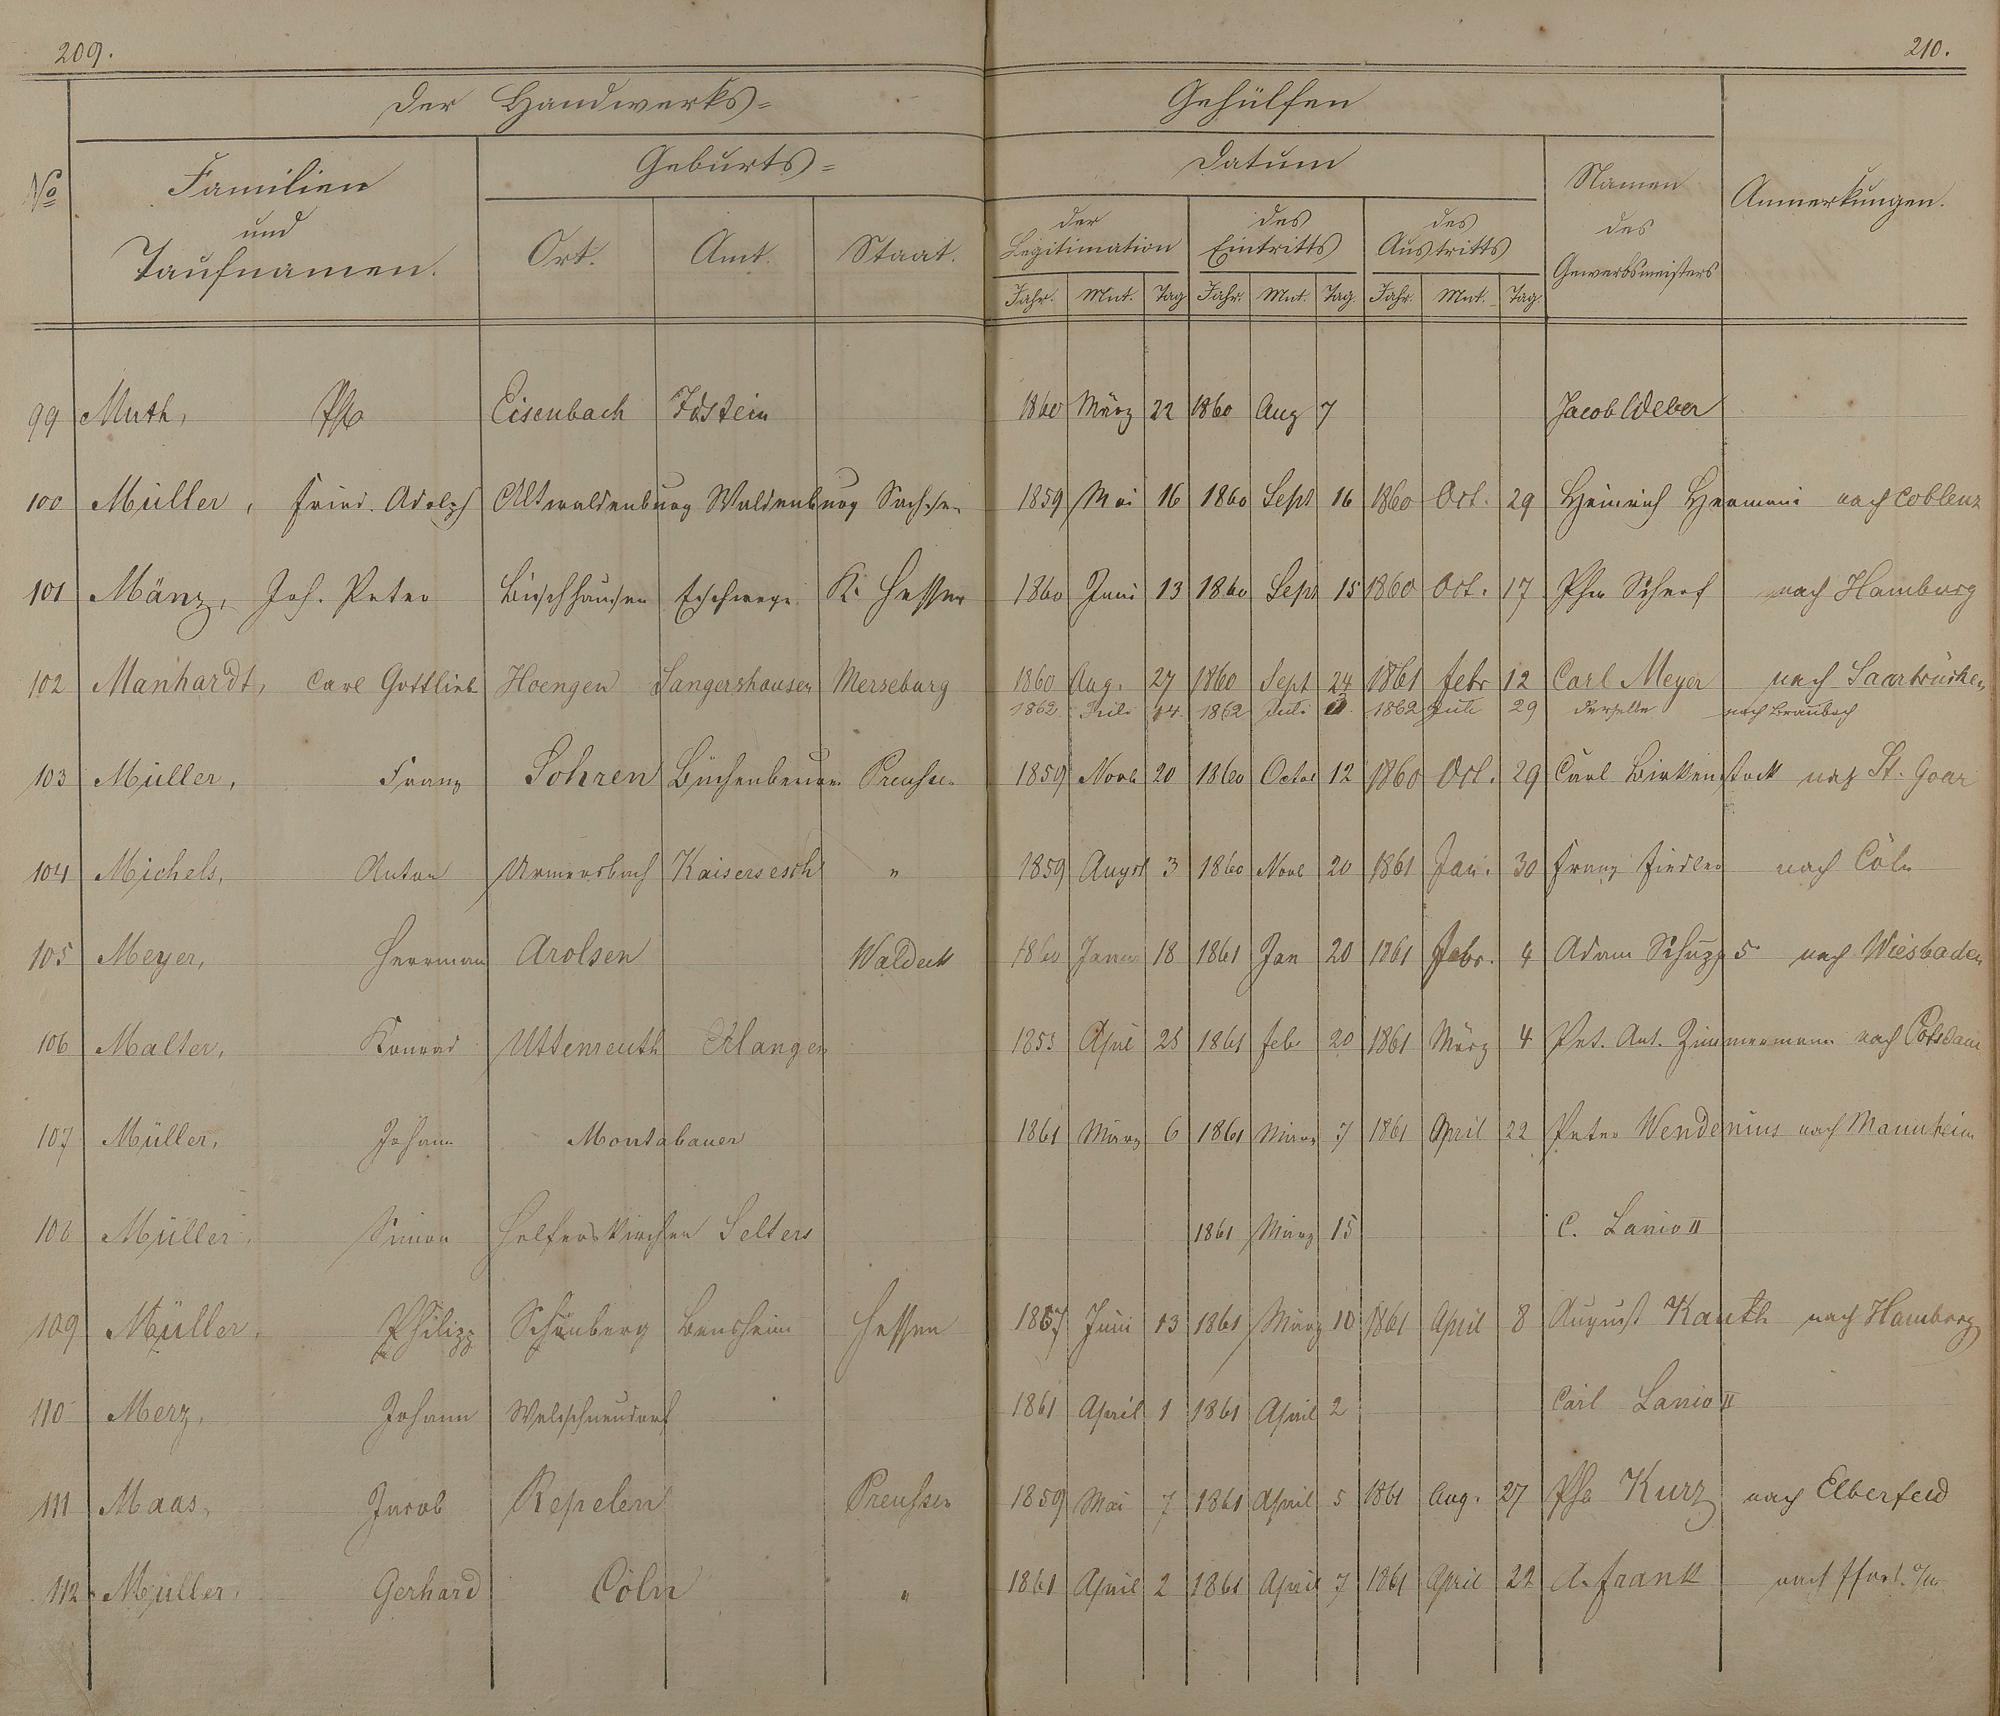 209.
210.
Der Handwerks=
Gehülfen
No
Familien
und
Taufnamen.
Geburts=
Ort.
Amt.
Staat.
Datum
der
Legitimation
des
Eintritts
des
Austritts
Jahr. Mnt. Tag Jahr. Mnt. Tag. Jahr. Mnt. Tag.
Namen
des
Gewerbsmeisters
Anmerkungen.
99 Muth, Eisenbach Idstein 1860 März 22 1860 Aug 7 Jacob Weber
100 Müller, Fried. Adolph Altwaldenburg Waldenburg Sachsen 1859 Mai 16 1860 Sept 16 1860 Oct. 29 Heinrich Hermani nach Coblenz
101 Mänz, Joh. Peter Bischhausen Eschwege K. Hessen 1860 Juni 13 1860 Sept 15 1860 Oct. 17 Scherf nach Hamburg
102 Manhardt, Carl Gottlieb Hoengen Sangershausen Merseburg 1860 Aug. 27 1860 Sept 24 1861 Febr 12 Carl Meyer nach Saarbrücken
1862 Juli 14. 1862 Juli 1862 Juli 29 derselbe nach Braubach
103 Müller, Franz Sohren Büchenbeuren Preußen 1859 Novb 20 1860 Octob 12 1860 Oct. 29 Carl Birkenstock nach St. Goar
104 Michels, Anton Urmersbach Kaisersesch " 1859 Augst 3 1860 Novb 20 1861 Jan. 30 Franz Fiedler nach Cöln
105 Meyer, Herrman Arolsen Waldeck 1860 Janu 18 1861 Jan 20 1861 Febr. 4 Adam Schupp 5r nach Wiesbaden
106 Malter, Konrad Uttenreuth Erlangen 1853 April 28 1861 Feb 20 1861 März 4 Pet. Ant. Zimmermann nach Potsdam
107 Müller, Johann Montabauer 1861 März 6 1861 März 7 1861 April 22 Peter Wendenius nach Mannheim
108 Müller, Simon Helferskirchen Selters 1861 März 15 C. Lanio II
109 Müller, Philipp Schönberg Bensheim Hessen 1857 Juni 13 1861 März 10 1861 April 8 August Kauth nach Hamburg
110 Merz, Johann Welschneudorf 1861 April 1 1861 April 2 Carl Lanio II
111 Maas, Jacob Repelen Preußen 1859 Mai 7 1861 April 5 1861 Aug. 27 Kurz nach Elberfeld
112 Müller, Gerhard Cöln " 1861 April 2 1861 April 7 1861 April 22 A. Frank nach